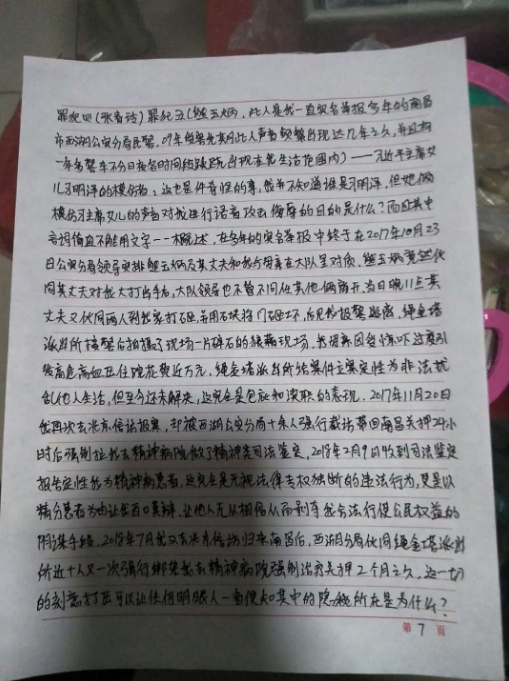 罪犯四(张春诗)罪犯五(熊玉娟,此人是我一直实名举报多年的南昌
市西湖公安分局民警,09年结案先其用此人声音频繁出现达几年之久,并且有
一年多警车不分日夜各时间段跟踪出现在我生活范围内)——习近平主席女
儿习明泽的模仿者:这也是件奇怪的事,我并不知道谁是习明泽,但她俩
模仿习主席女儿的声音对我进行语音攻击侮辱的目的是什么?而且其中
言词简直不能用文字一一概述,在多年的实名举报中终于在2017年10月23
日公安分局领导安排熊玉娟及其丈夫和我与母亲在大队里对质,熊玉娟竟然伙
同其丈夫对我大打出手后,大队领导也不管不问任其他俩离开,当日晚11点其
丈夫又伙同两人到我家打砸,并用石块将门砸坏,后见我报警逃离,绳金塔
派出所接警后拍摄了现场一片碎石的狼藉现场,我母亲因受惊吓过度引
发高危高血压住院花费近万元,绳金塔派出所结案件主要定性为非法扰
乱他人生活,但至今还未解决,这完全是包庇和渎职的表现,2017年11月20日
我再次去北京信访报案,却被西湖公安分局十余人强行截访带回南昌关押24小
时后强制拉我去精神病院做了精神类司法鉴定,2018年2月9日收到司法鉴定
报告定性我为精神病患者,这完全是无视法律专权独断的违法行为,更是以
精分患者为由让我百口莫辩,让他人无从相信从而剥夺我合法行使公民权益的
阴谋手段,2018年7月我又去北京信访归来南昌后,西湖分局伙同绳金塔派出
所近十人又一次强行绑架我去精神病院强制治疗关押2个月之久,这一切
的刻意打压可以让任何明眼人一看便知其中的隐秘所在是为什么?
第7页